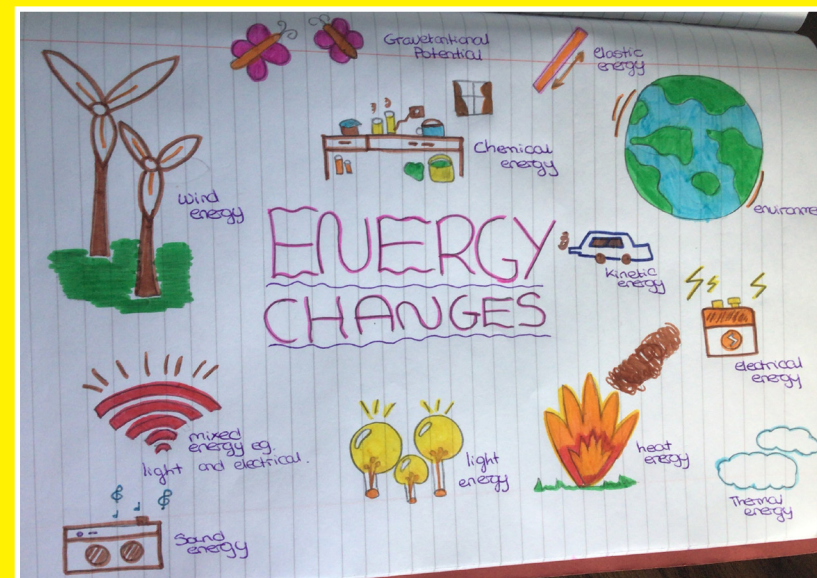 Gravetantional
Potential
elastic
energy
Chemical
energy
wind
energy
environme
ENERGY
CHANGES
kinetic
energy
electrical
energy
mixed
energy eg.
light and electrical.
light
energy
heat
energy
Thermal
energy
Sound
energy